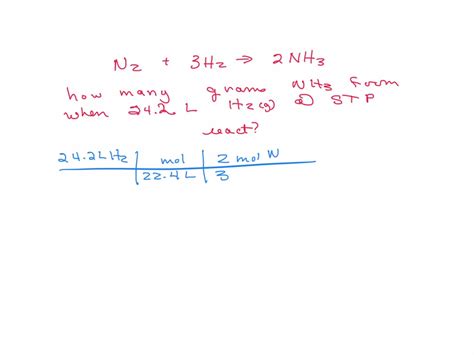 N₂ + 3H₂ → 2NH₃
how many grams NH₃ form
when 24.2 L H₂(g) @ STP
react?
24.2L H₂ | mol | 2 mol N
22.4 L | 3